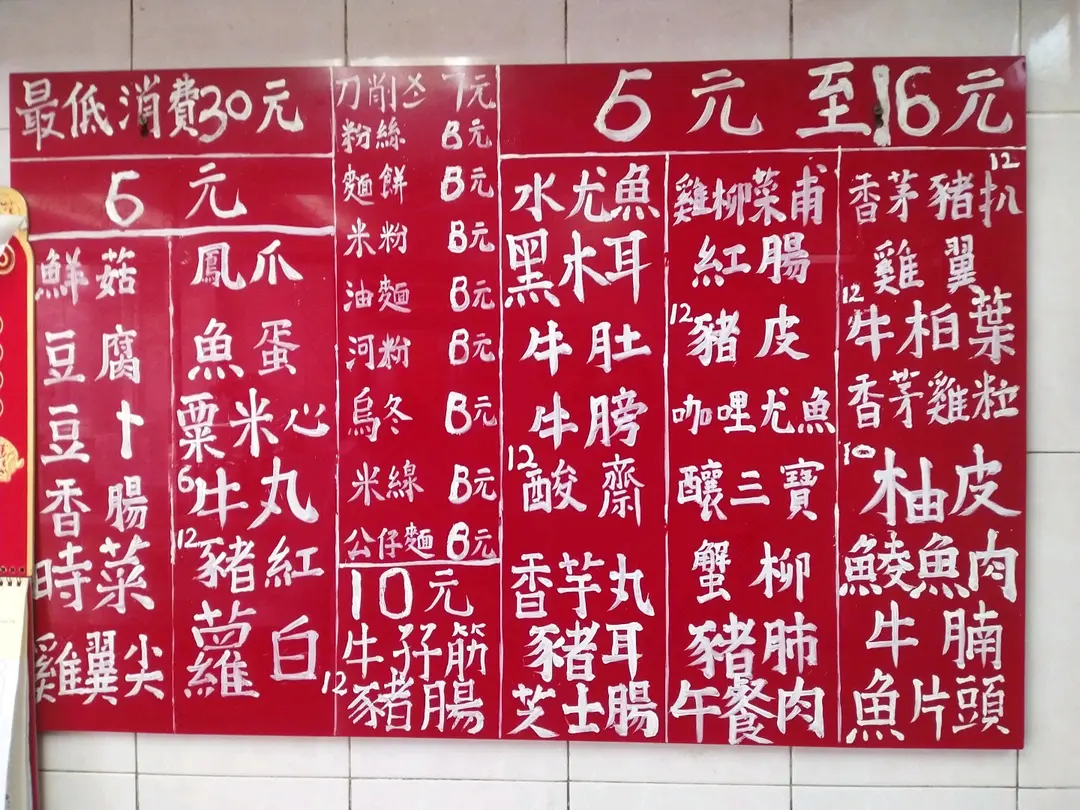 最低消費30元
5元
鮮菇
豆腐
豆卜
香腸
時菜
雞翼尖
鳳爪
魚蛋
粟米心
6牛丸
12豬紅
蘿白
刀削 7元
粉絲 8元
麵餅 8元
米粉 8元
油麵 8元
河粉 8元
烏冬 8元
米線 8元
公仔麵 6元
10元
牛孖筋
12豬腸
5元至16元
水尤魚
黑木耳
牛肚
牛膀
12酸齋
香芋丸
豬耳
芝士腸
雞柳菜甫
紅腸
12豬皮
咖哩尤魚
釀三寶
蟹柳
豬肺
午餐肉
香茅豬扒12
雞翼
12牛柏葉
香茅雞粒
10柚皮
鯪魚肉
牛腩
魚片頭